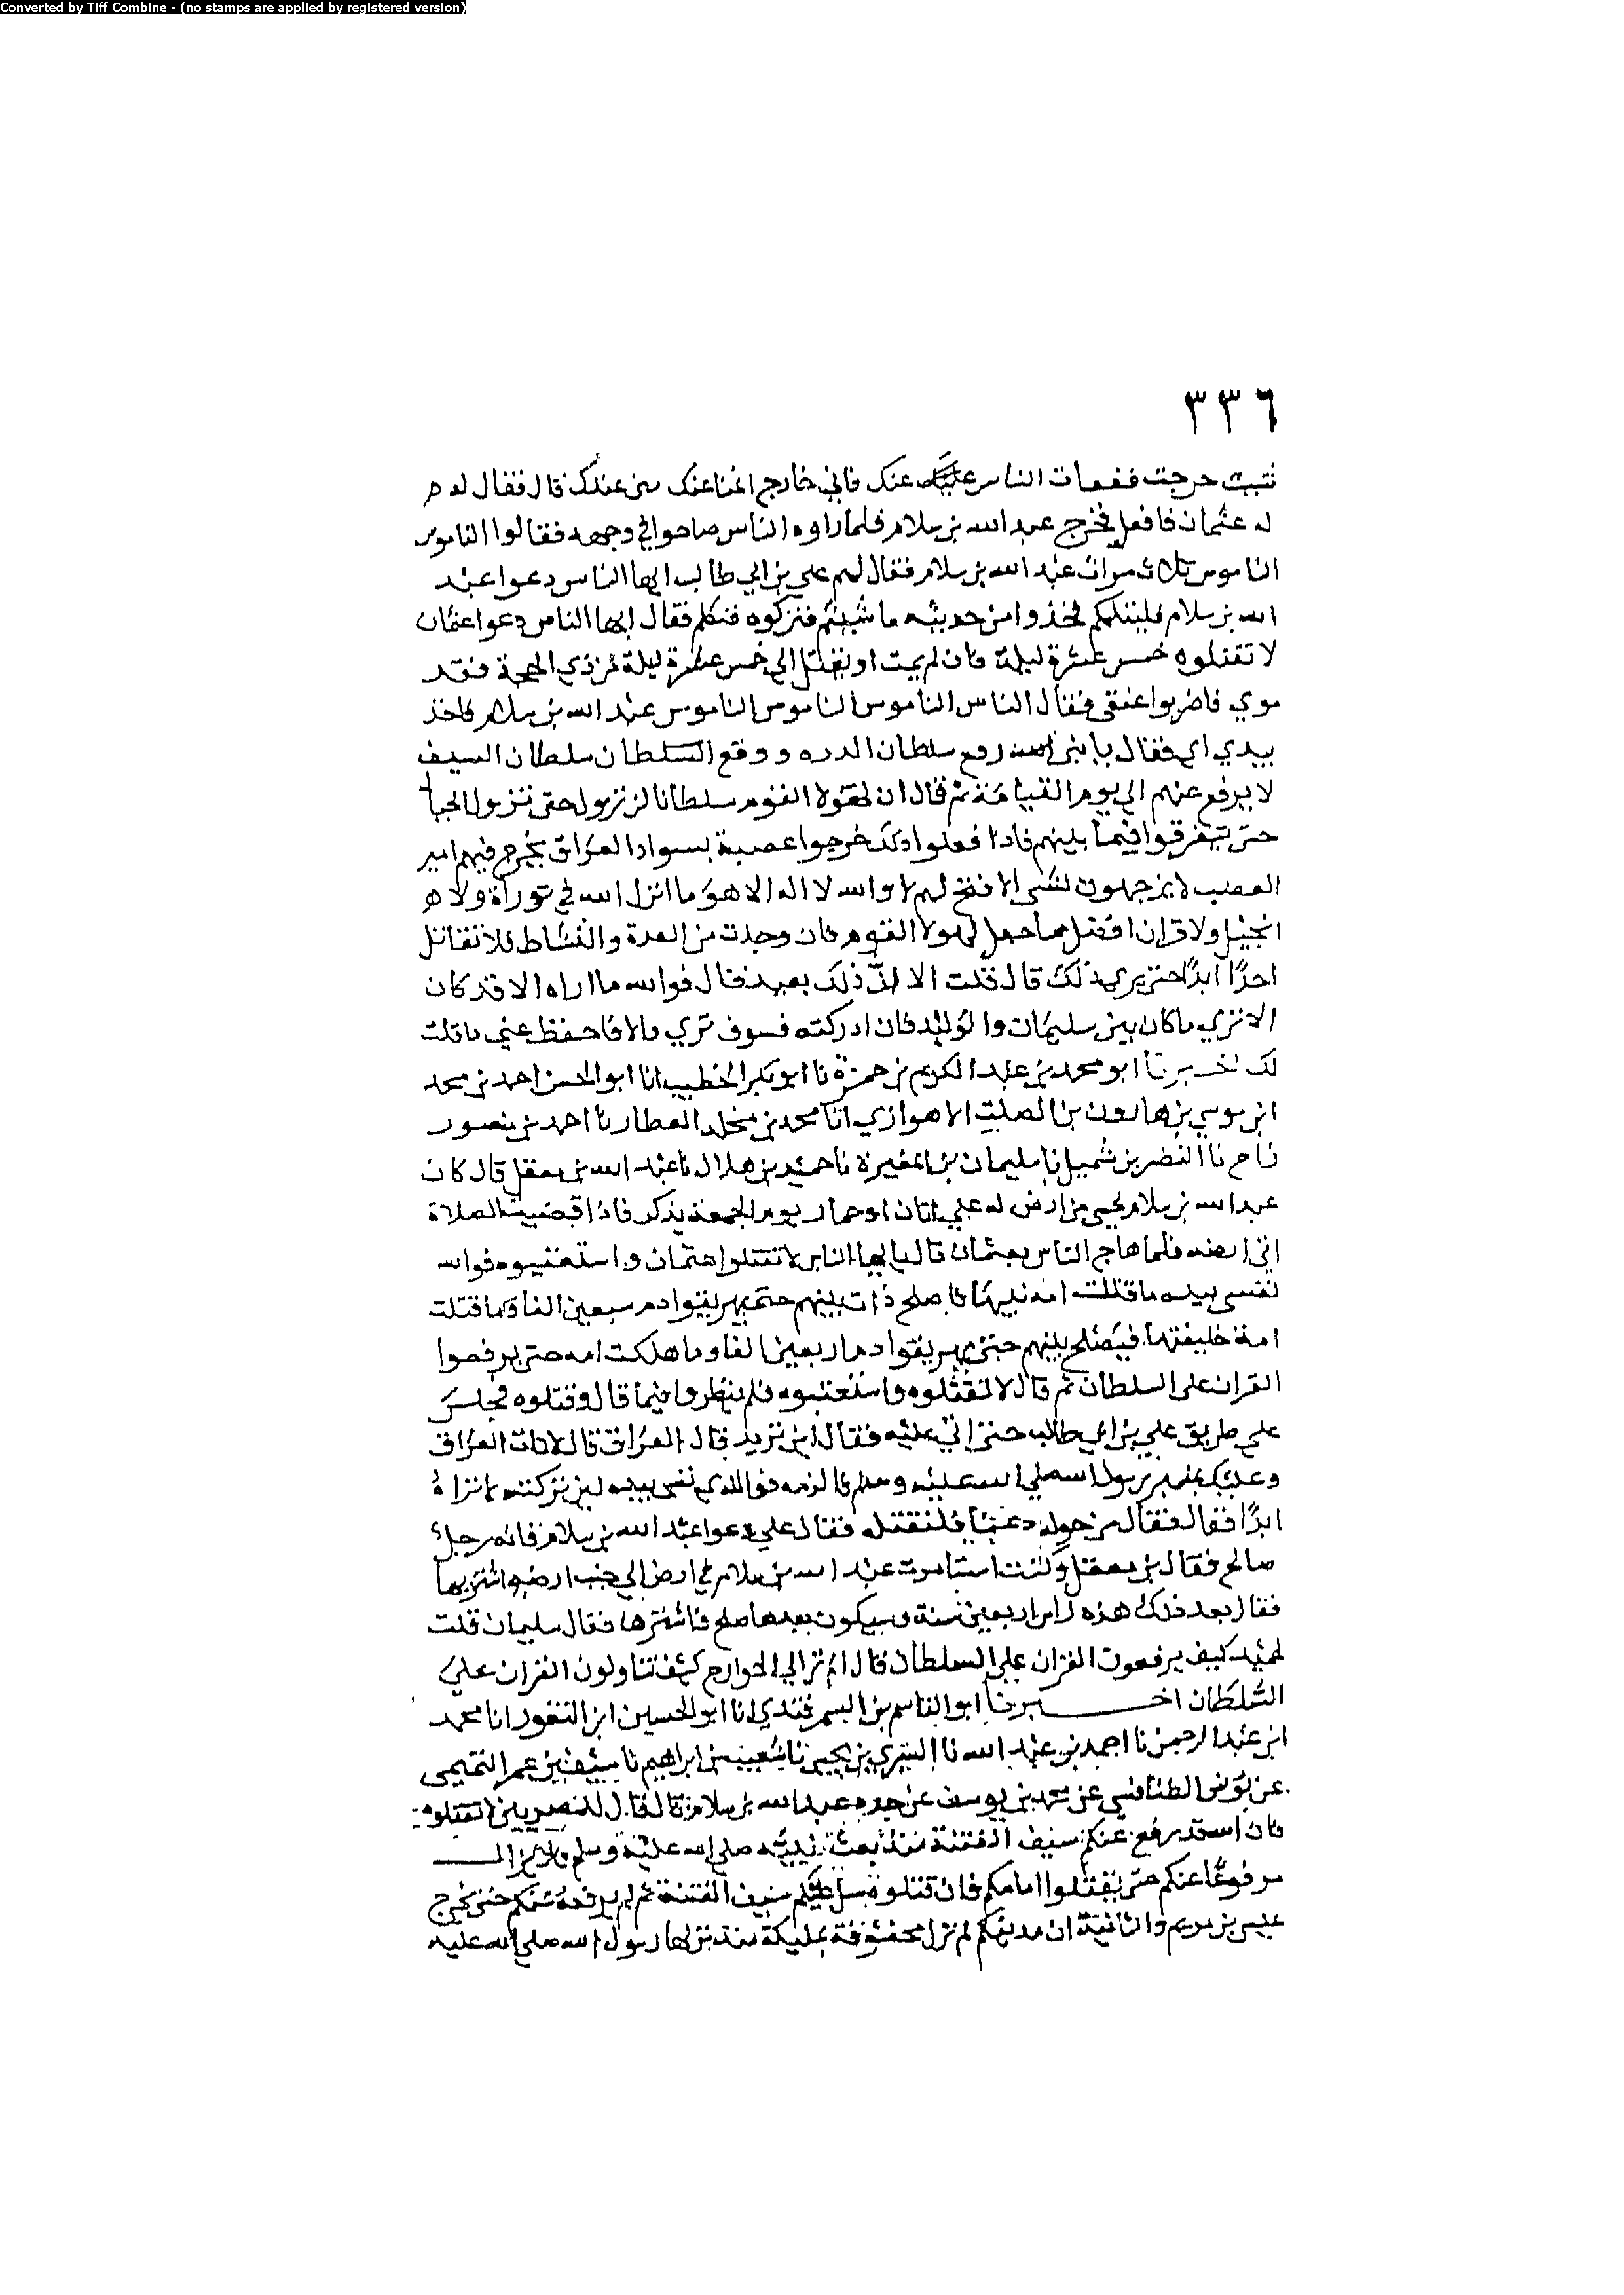 Converted by Tiff Combine - (no stamps are applied by registered version)
٣٣٦
خرجت الناس عنك فاني خارج عنك قال فقال
له عثمان فافعل فخرج عبد الله بن سلام فلما راوه الناس صاحوا في وجهه فقالوا الناموس
الناموس ثلاث مرات عبد الله بن سلام فقال لهم علي بن ابي طالب ايها الناس دعوا عبد
الله بن سلام فليتكلم فخذوا من حديثه ما شيتم فتركوه فتكلم فقال ايها الناس دعوا عثمان
لا تقتلوه خمس عشرة ليلة فان لم يمت او يقتل الي خمس عشرة ليلة من ذي الحجة فقد
فاضربوا عنقي فقال الناس الناموس الناموس الناموس عبد الله بن سلام فاخذ
بيدي ابي فقال يا بني رفع سلطان الدره ووقع السلطان سلطان السيف
لا يرفع عنهم الي يوم القيامة ثم قال ان لهولا القوم سلطانا لن يزول حتى تزول الجبال
حتى يتفرقوا فيما بينهم فاذا فعلوا ذلك خرجوا عصبة بسواد العراق يخرج فيهم امير
العصب لا يتوجهون لشي الا فتح لهم لا والله لا اله الا هو ما انزل الله في توراة ولا
انجيل ولا قران افضل مما جعل لهولا القوم فان وجدت من العدة والنشاط فلا تقاتل
احدًا ابدًا حتى يري ذلك قال قلت الا ان ذلك بعيد فقال فوالله ما اراه الا قد كان
الا تري ما كان بين سليمان والوليد فان ادركته فسوف تري والا فاحفظ عني ما قلت
لك اخبرنا ابو محمد بن عبد الكريم بن حمزة نا ابو بكر الخطيب انا ابو الحسن احمد بن محمد
ابن موسي بن هارون بن الصلت الاهوازي انا محمد بن مخلد العطار نا احمد بن منصور
زاج نا النضر بن شميل نا سليمان بن المغيرة نا حميد بن هلال نا عبد الله بن معقل قال كان
عبد الله بن سلام يجي من ارض له علي اتان او حمار يوم الجمعة يذكر فاذا قضيت الصلاة
اتي ارضه فلما هاج الناس بعثمان قال يا ايها الناس لا تقتلوا عثمان واستعتبوه فوالله
نفسي بيده ما قتلت امة نبيها فاصلح ذات بينهم حتى يهريقوا دم سبعين الفا وما قتلت
امة خليفتها فيصلح بينهم حتى يهريقوا دم اربعين الفا وما هلكت امه حتى يرفعوا
القران على السلطان ثم قال لا تقتلوه واستعتبوه فلم ينظروا فيما قال وقتلوه فجلس
علي طريق علي بن ابي طالب حتى اتي عليه فقال اين تريد قال العراق قال لا تات العراق
وعليك بمنبر رسول الله صلي الله عليه وسلم فالزمه فوالذي نفسي بيده لين تركته لا تراه
ابدًا فقال فقال من حوله دعنا فلنقتله فقال علي دعوا عبد الله بن سلام فانه رجل
صالح فقال بن معقل وكنت استامرت عبد الله بن سلام في ارض الي جنب ارضه اشتريها
فقال بعد ذلك هذه راس اربعين سنة وسيكون بعدها صلح فاشترها فقال سليمان قلت
لحميد كيف يرفعون القران علي السلطان قال الم تر الي الخوارج كيف يتاولون القران علي
السلطان اخبرنا ابو القاسم بن السمرقندي انا ابو الحسين ابن النقور انا محمد
ابن عبد الرحمن نا احمد بن عبد الله نا السري بن يحيى نا شعيب بن ابراهيم نا سيف بن عمر التميمي
عن الطنافسي عن محمد بن يوسف عن جده عبد الله بن سلام قال قال للمصريين لا تقتلوه
فان الله قد رفع عنكم سيف الفتنة منذ بعث نبيه صلى الله عليه وسلم فلا يزال
مرفوعًا عنكم حتى يقتلوا امامكم فان قتلتوه سل عليكم سيف الفتنة ثم لم يرفعه عنكم حتى يخرج
عيسى بن مريم والثانية ان مدينتكم لم تزل محفوفة بمليكة منذ نزلها رسول الله صلي الله عليه